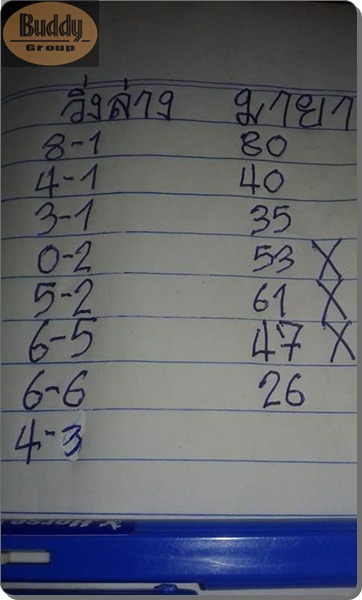 Buddy
Group
วิ่งล่าง มายา
8-1 80
4-1 40
3-1 35
0-2 53 X
5-2 61 X
6-5 47 X
6-6 26
4-3